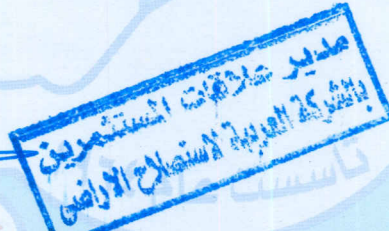 مدير علاقات المستثمرين
بالشركة العربية لاستصلاح الاراضى
تأسست عام